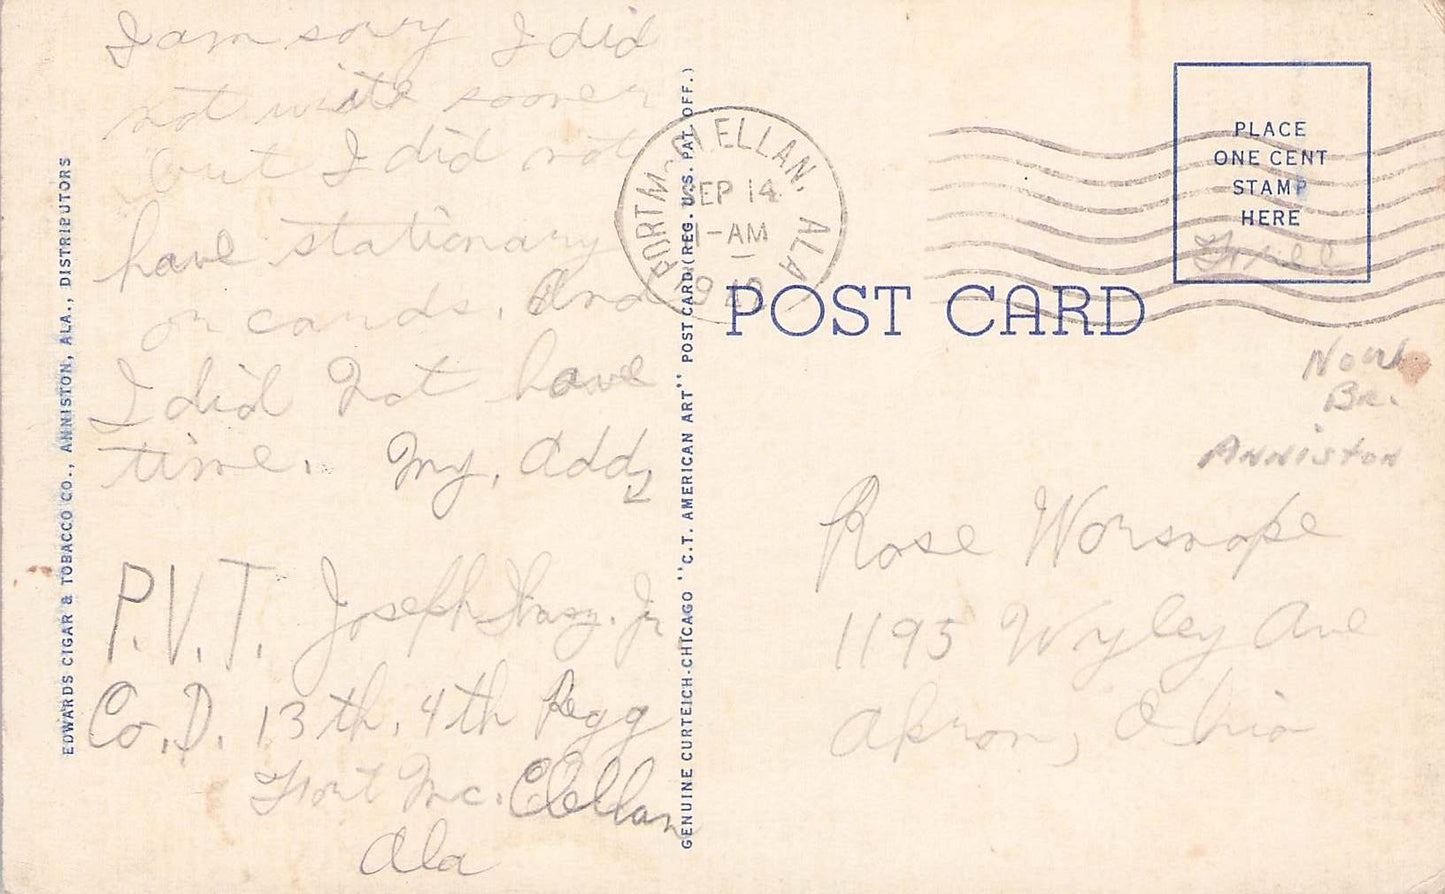 I am sorry I did
not write sooner
but I did not
have stationary
or cards. And
I did not have
time. My, Add,
P.V.T. Joseph Jr
Co. D. 13th, 4th Regg
Fort Mc. Clellan
Ala
EDWARDS CIGAR & TOBACCO CO., ANNISTON, ALA., DISTRIBUTORS
GENUINE CURTEICH-CHICAGO "C.T. AMERICAN ART" POST CARD (REG. U.S. PAT. OFF.)
FORT McCLELLAN, ALA
SEP 14
1-AM
POST CARD
PLACE
ONE CENT
STAMP
HERE
Free
Br.
ANNISTON
Rose Worsnope
1195 Wyley Ave
Akron, Ohio